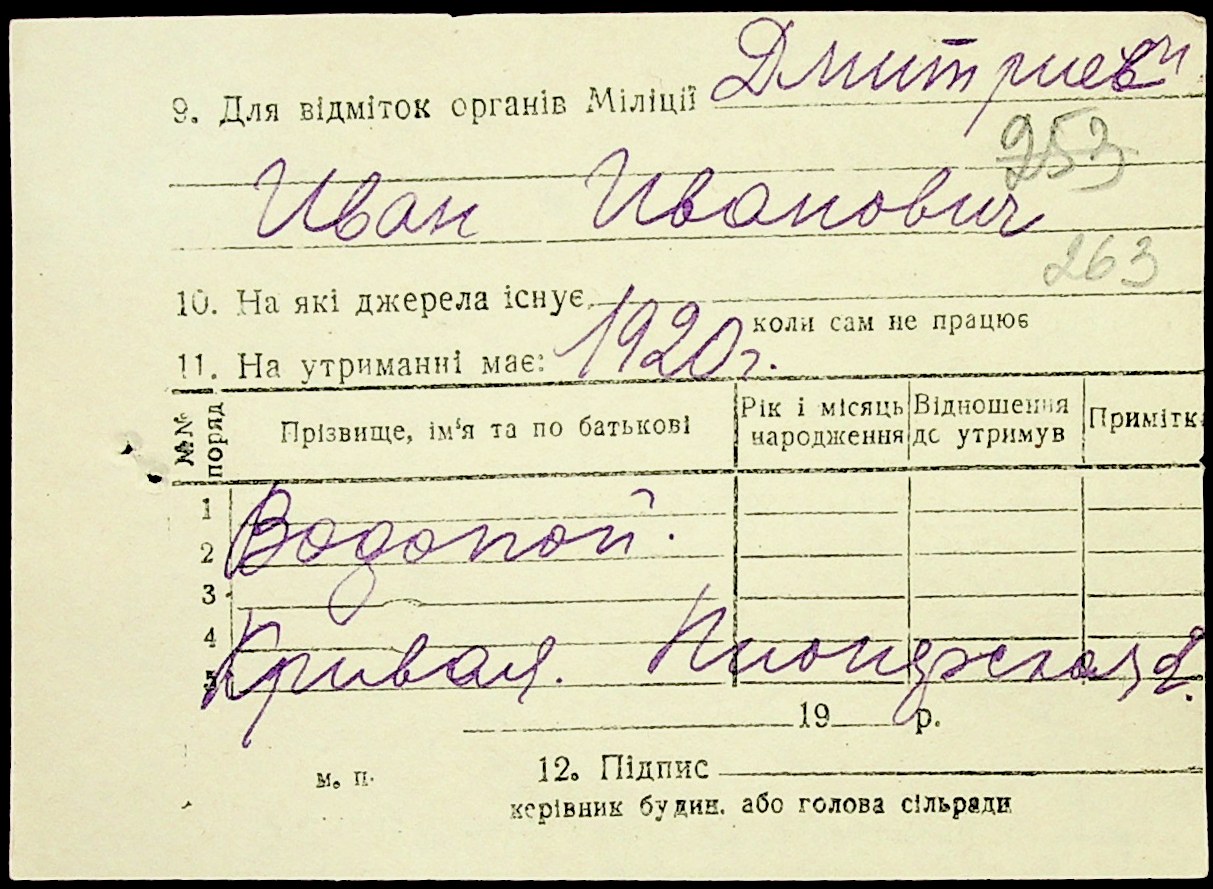 9. Для відміток органів Міліції Дмитриев
253
Иван Иванович
263
10. На які джерела існує
коли сам не працює
11. На утриманні має: 1920 г.
№№ поряд
Прізвище, ім'я та по батькові
Рік і місяць народження
Відношення до утримув
Примітк
1
Водопой.
2
3
4
Кривая.
5
19 р.
м. п.
12. Підпис
керівник будин. або голова сільради